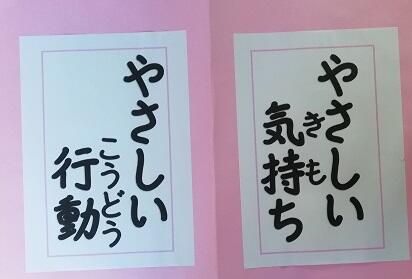 やさしい
気持ち
きも
やさしい
行動
こうどう